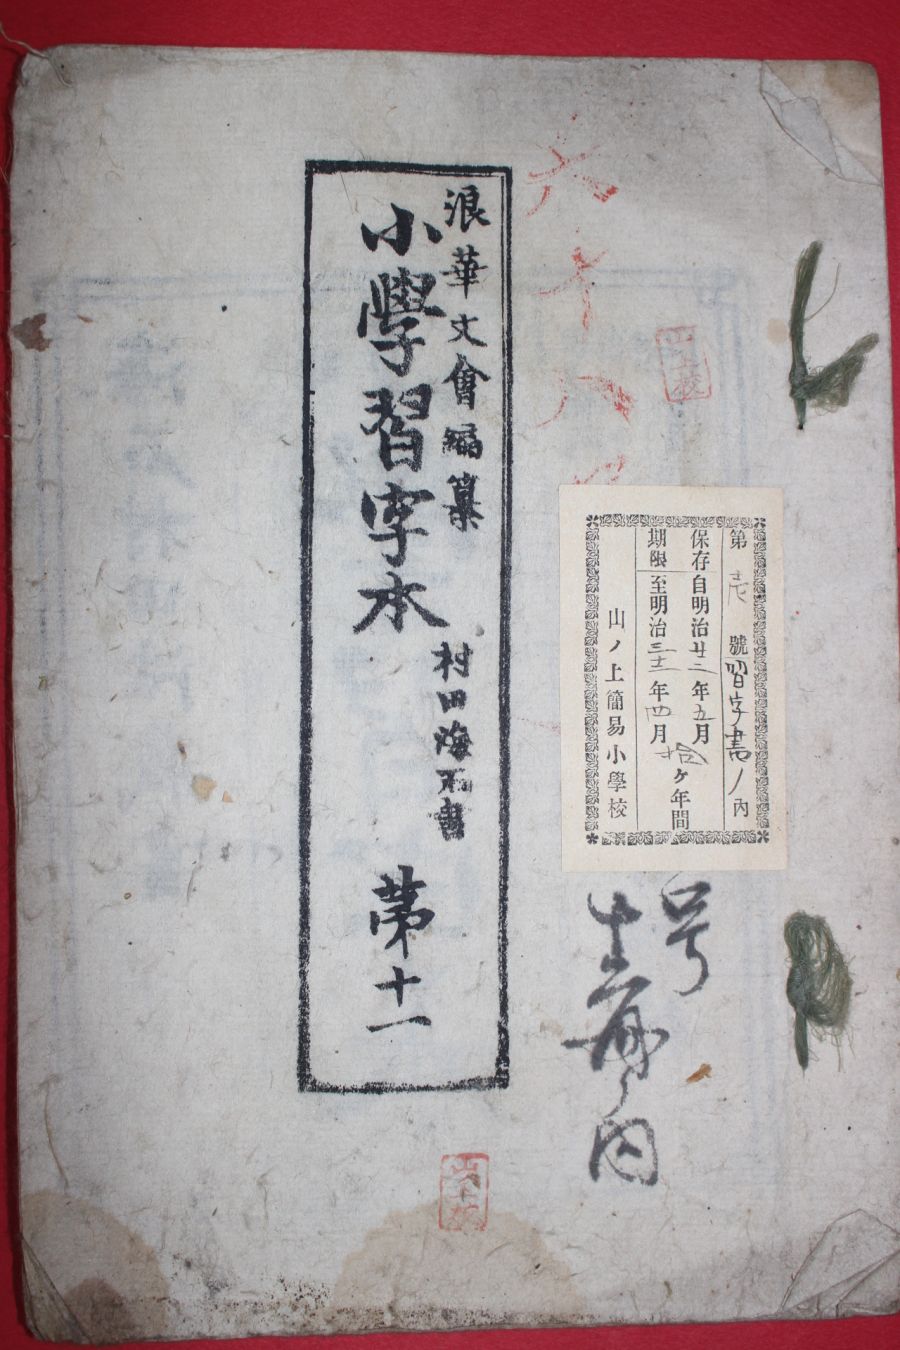 浪華文會編纂
小學習字本
村田海石書
第十一
六十八
第 壱 號 習字書ノ内
保存期限
自明治廿二年五月
至明治三十二年四月
拾ヶ年間
山ノ上簡易小學校
号
内